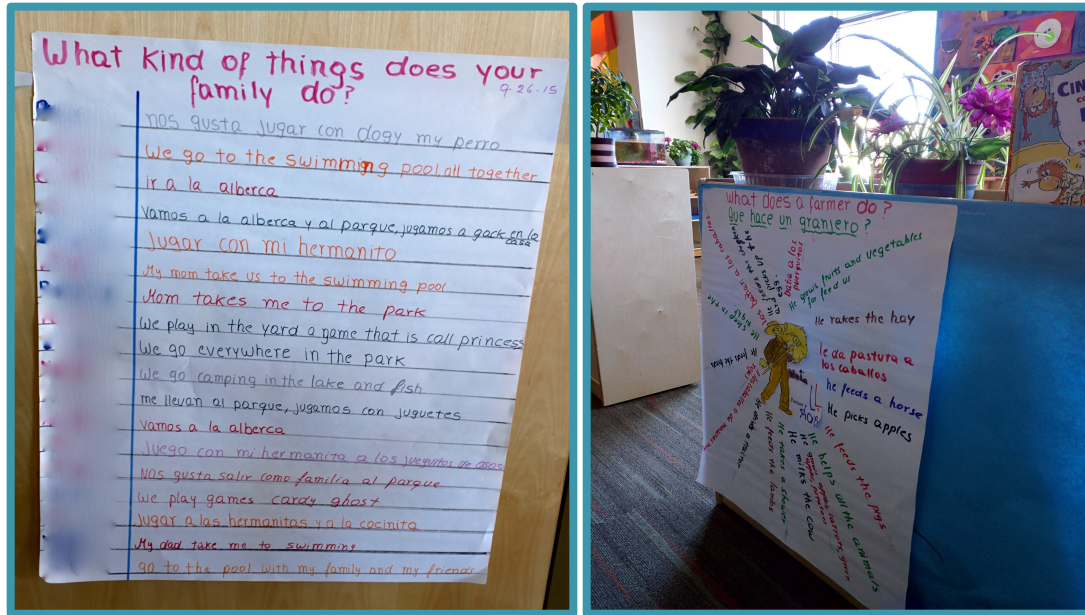 What kind of things does your
family do?
9-26-15
nos gusta jugar con dogy my perro
We go to the swimming pool all together
ir a la alberca
Vamos a la alberca y al parque, jugamos a en la
casa
Jugar con mi hermanito
My mom take us to the swimming pool
Mom takes me to the park
We play in the yard a game that is call princess
We go everywhere in the park
We go camping in the lake and fish
me llevan al parque, jugamos con juguetes
Vamos a la alberca
Juego con mi hermanita a los jueguitos de
Nos gusta salir como familia al parque
We play games candy ghost
Jugar a las hermanitas y a la cocinita
My dad take me to swimming
go to the pool with my family and my friends
What does a farmer do?
Que hace un granjero?
Baña a los
puerquitos
He grows fruits and vegetables
for feed us
He rakes the hay
le da pastura a
los caballos
he feeds a horse
He picks apples
He feeds the pigs
He helps all the animals
He milks the cow
He takes a shower
He feeds the lambs
He drives a tractor
CIN